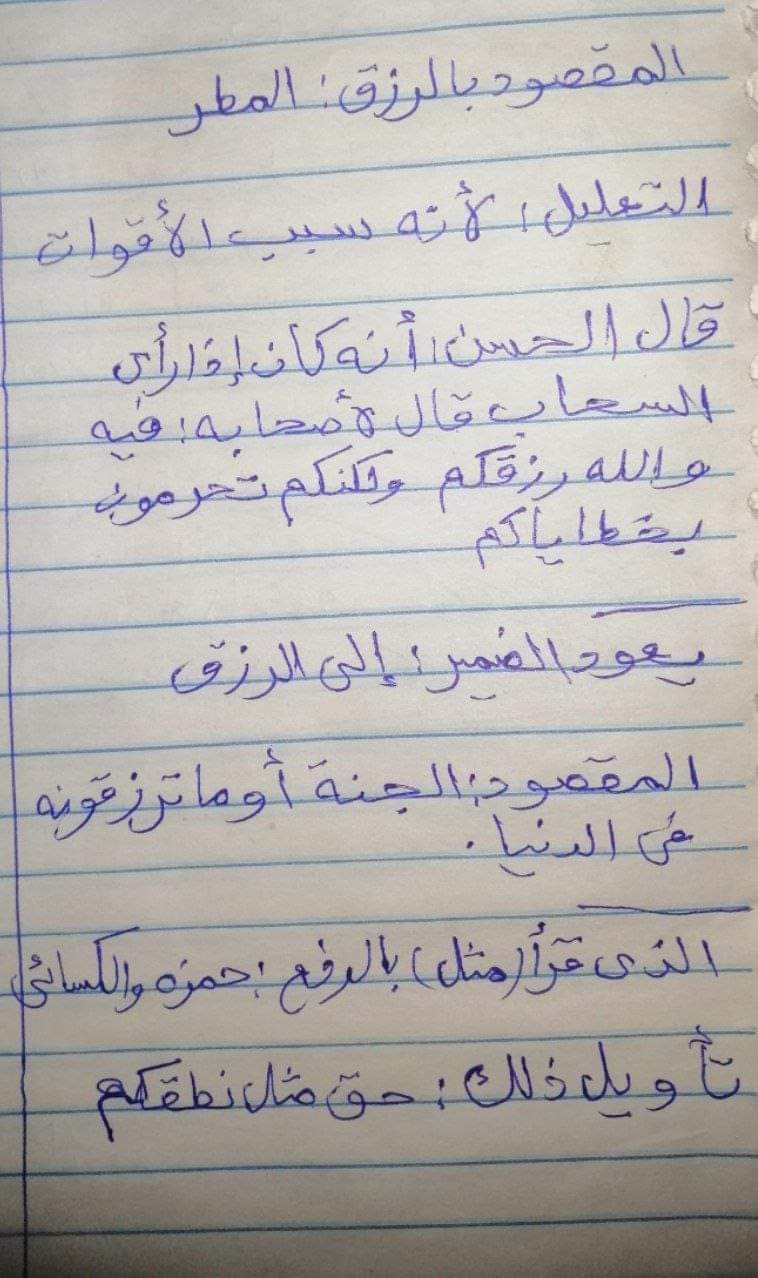 المقصود بالرزق: المطر
التعليل: لأنه سبب الأقوات
قال الحسن: أنه كان إذا رأى
السحاب قال لأصحابه: فيه
والله رزقكم ولكنكم تحرمونه
بخطاياكم
يعود الضمير: إلى الرزق
المقصود: الجنة أو ما ترزقونه
فى الدنيا.
الذى قرأ (مثل) بالرفع: حمزه والكسائى
تأويل ذلك: حق مثل نطقكم